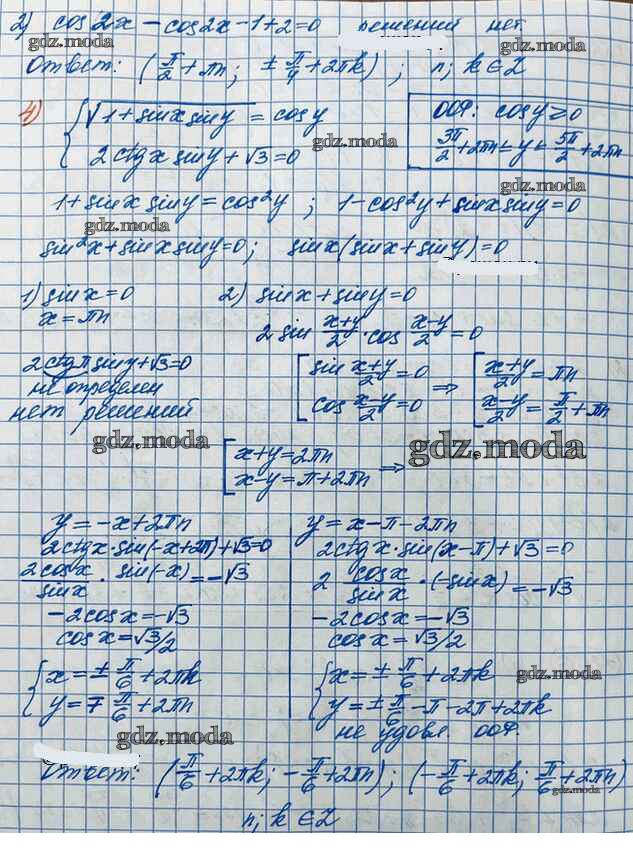 2) cos2x - cos2x - 1 + 2 = 0 решений нет
gdz.moda gdz.moda gdz.moda
Ответ: (π/2 + πn; ± π/4 + 2πk); n; k ∈ Z
4) { √(1 + sinx siny) = cosy
2ctgx siny + √3 = 0
ООФ: cosy ≥ 0
3π/2 + 2πn ≤ y ≤ 5π/2 + 2πn
gdz.moda gdz.moda gdz.moda
1 + sinx siny = cos²y; 1 - cos²y + sinx siny = 0
gdz.moda
sin²x + sinx siny = 0; sinx(sinx + siny) = 0
gdz.moda gdz.moda
1) sinx = 0
x = πn
2) sinx + siny = 0
2 sin (x+y)/2 · cos (x-y)/2 = 0
2ctgπ siny + √3 = 0
не определен
нет решений
gdz.moda
[ sin (x+y)/2 = 0
cos (x-y)/2 = 0
⇒ [ (x+y)/2 = πn
(x-y)/2 = π/2 + πn
gdz.moda
[ x+y = 2πn
x-y = π + 2πn ⇒
y = -x + 2πn
2ctgx · sin(-x + 2π) + √3 = 0
2cosx/sinx · sin(-x) = -√3
-2cosx = -√3
cosx = √3/2
{ x = ± π/6 + 2πk
y = ∓ π/6 + 2πn
gdz.moda
y = x - π - 2πn
2ctgx · sin(x - π) + √3 = 0
2 cosx/sinx · (-sinx) = -√3
-2cosx = -√3
cosx = √3/2
{ x = ± π/6 + 2πk
y = ± π/6 - π - 2π + 2πk
не удовл. ООФ.
gdz.moda gdz.moda
Ответ: (π/6 + 2πk; -π/6 + 2πn); (-π/6 + 2πk; π/6 + 2πn)
gdz.moda gdz.moda
n; k ∈ Z